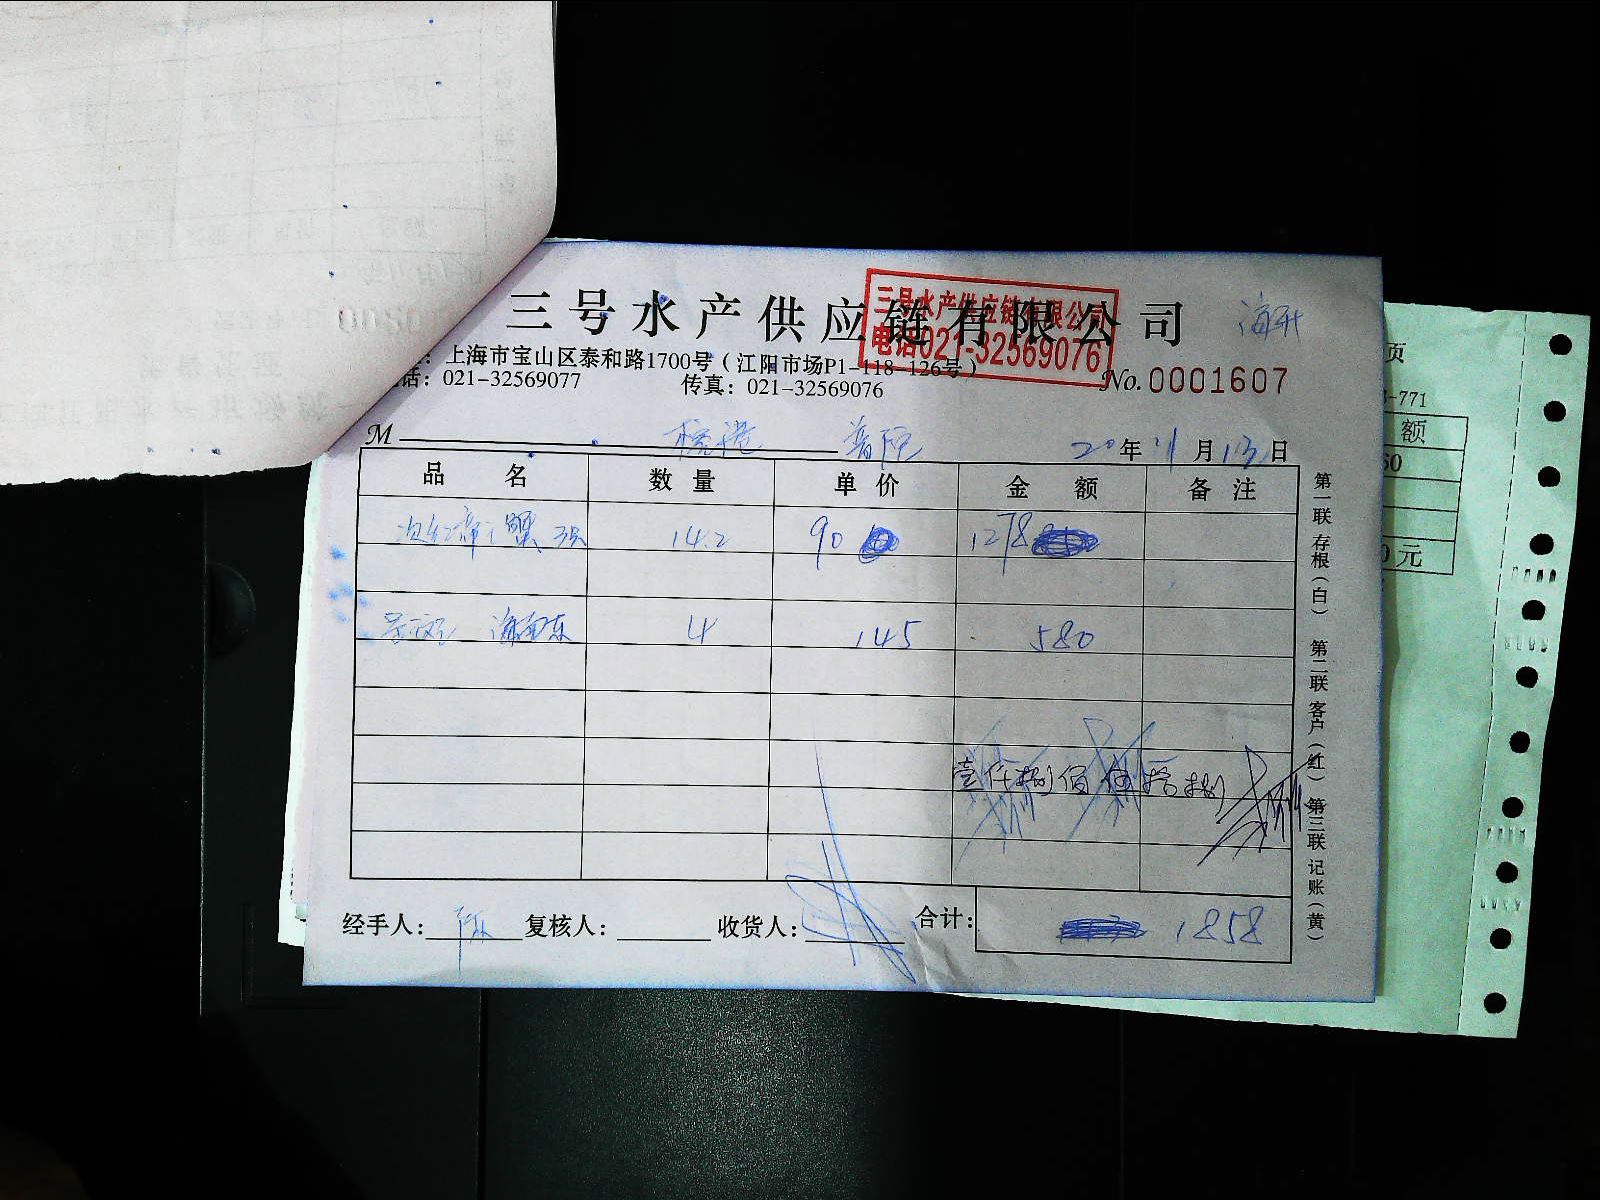 三号水产供应链有限公司
三号水产供应链有限公司
电话021-32569076
海升
上海市宝山区泰和路1700号（江阳市场P1-118-126号）
话：021-32569077 传真：021-32569076
No.0001607
M 普陀 20年11月13日
品名 数量 单价 金额 备注
14.2 90 1278
4 145 580
壹仟捌佰伍拾捌
经手人：陈 复核人： 收货人： 合计： 1858
第一联 存根（白） 第二联 客户（红） 第三联 记账（黄）
页
-771
额
60
0元